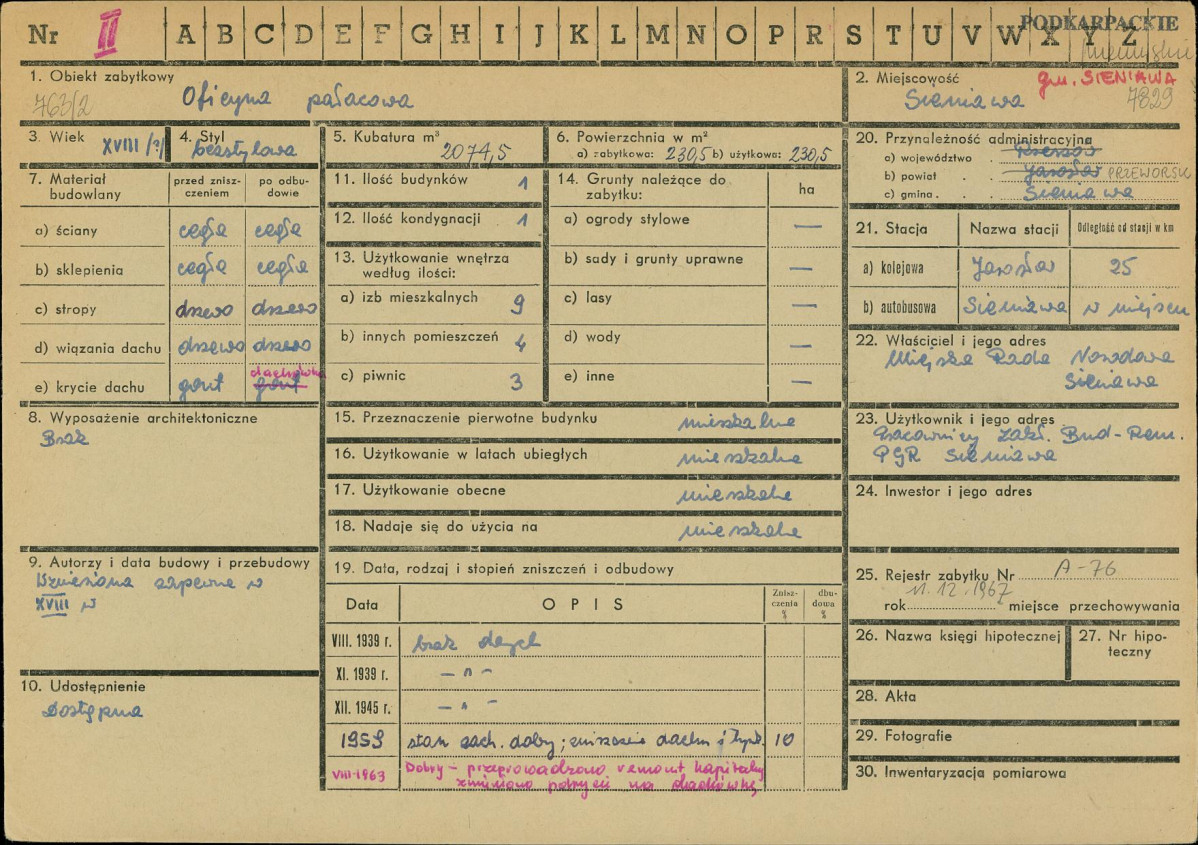 Nr II A B C D E F G H I J K L M N O P R S T U V W X Y Z
PODKARPACKIE
1. Obiekt zabytkowy
763/2
Oficyna pałacowa
2. Miejscowość gm. SIENIAWA
Sieniawa 7829
3. Wiek XVIII /?/
4. Styl
bezstylowa
5. Kubatura m³
2074,5
6. Powierzchnia w m²
a) zabytkowa: 230,5 b) użytkowa: 230,5
7. Materiał budowlany
przed znisz-
czeniem
po odbu-
dowie
a) ściany cegła cegła
b) sklepienia cegła cegła
c) stropy drzewo drzewo
d) wiązania dachu drzewo drzewo
e) krycie dachu gont gont dachówka
8. Wyposażenie architektoniczne
Brak
9. Autorzy i data budowy i przebudowy
Wzniesiona zapewne w
XVIII w
10. Udostępnienie
Dostępna
11. Ilość budynków 1
12. Ilość kondygnacji 1
13. Użytkowanie wnętrza
według ilości:
a) izb mieszkalnych 9
b) innych pomieszczeń 4
c) piwnic 3
14. Grunty należące do
zabytku:
ha
a) ogrody stylowe —
b) sady i grunty uprawne —
c) lasy —
d) wody —
e) inne —
15. Przeznaczenie pierwotne budynku mieszkalne
16. Użytkowanie w latach ubiegłych mieszkalne
17. Użytkowanie obecne mieszkalne
18. Nadaje się do użycia na mieszkalne
19. Data, rodzaj i stopień zniszczeń i odbudowy
Data OPIS
Znisz-
czenia
%
dbu-
dowa
%
VIII. 1939 r. brak danych
XI. 1939 r. — " —
XII. 1945 r. — " —
1959 stan zach. dobry; zniszczenie dachu i tynk. 10
VIII-1963 Dobry – przeprowadzono remont kapitalny
zmieniono pokrycie na dachówkę
20. Przynależność administracyjna
a) województwo . Rzeszów
b) powiat . . Jarosław PRZEWORSK
c) gmina . . . Sieniawa
21. Stacja Nazwa stacji Odległość od stacji w km
a) kolejowa Jarosław 25
b) autobusowa Sieniawa w miejscu
22. Właściciel i jego adres
Miejska Rada Narodowa
Sieniawa
23. Użytkownik i jego adres
Pracownicy Zakł. Bud-Rem.
PGR Sieniawa
24. Inwestor i jego adres
25. Rejestr zabytku Nr A-76
rok 11.12.1967 miejsce przechowywania
26. Nazwa księgi hipotecznej
27. Nr hipo-
teczny
28. Akta
29. Fotografie
30. Inwentaryzacja pomiarowa